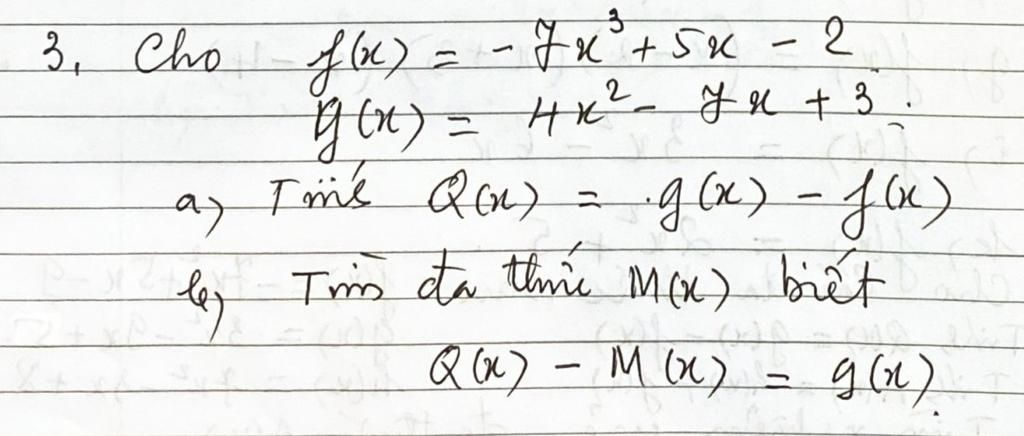 3, Cho f(x) = -7x³ + 5x - 2
g(x) = 4x² - 7x + 3.
a, Tính Q(x) = g(x) - f(x)
b, Tìm đa thức M(x) biết
Q(x) - M(x) = g(x).